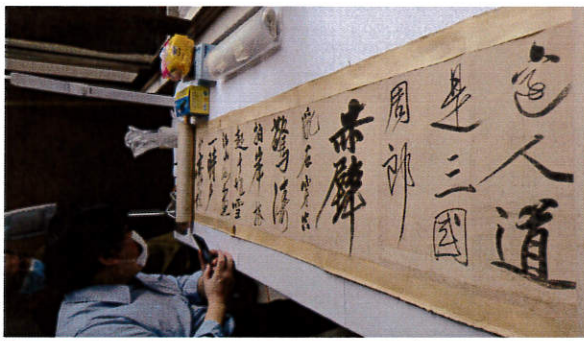 邊人道
是三國
周郎
赤壁
亂石穿空
驚濤
拍岸捲
起千堆雪
江山如畫
一時多